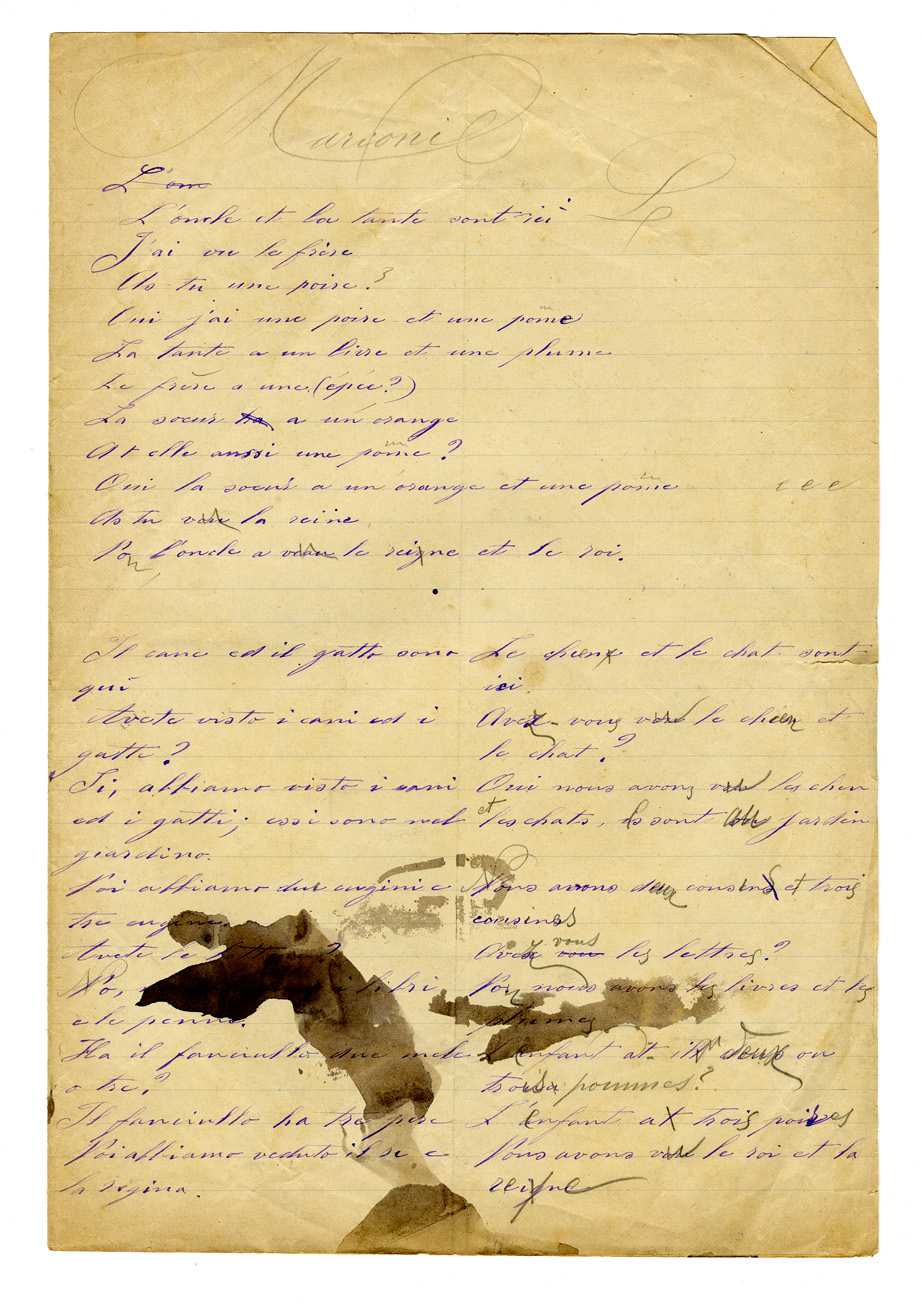 Marconi
L'on
L'oncle et la tante sont ici
J'ai vu le frère
As tu une poire?
Oui j'ai une poire et une pome
La tante a un livre et une plume
Le frère a une (épée?)
La soeur a un orange
At elle aussi une pome?
Oui la soeur a un orange et une pome e e e
As tu vu la reine
Non l'oncle a vu le reigne et le roi.
Il cane ed il gatto sono
qui
Avete visto i cani ed i
gatti?
Si, abbiamo visto i cani
ed i gatti; essi sono nel
giardino.
Noi abbiamo due cugini e
tre cugine.
Avete le
No, i libri
e le penne.
Ha il fanciullo due mele
o tre?
Il fanciullo ha tre pere
Noi abbiamo veduto il re e
la regina.
Le chien et le chat sont
ici.
Avez-vous vu le chien et
le chat?
Oui nous avons vu les chien
et les chats, ils sont au jardin
Nous avons deux cousins et trois
cousines
Avez vous les lettres?
Non nous avons les livres et les
plumes
L'enfant at-il deux ou
trois pommes?
L'enfant a trois poires
Nous avons vu le roi et la
reigne